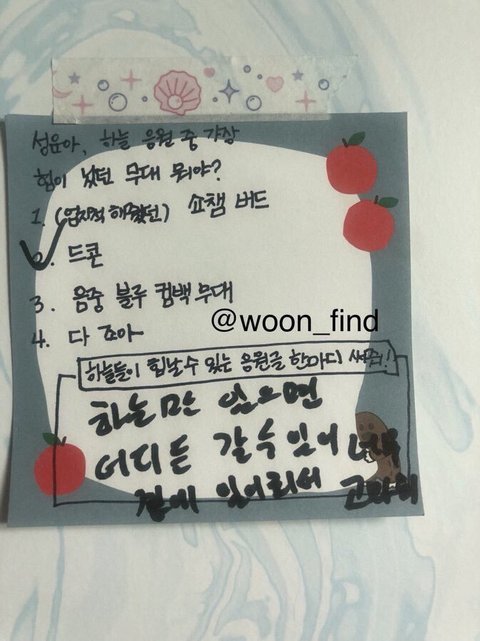 성유아, 하늘 응원 중 가장
힘이 났던 무대 뭐야?
1. (엄지척 해줬던) 쇼챔 버드
2. 드콘
3. 음중 블루 컴백 무대
4. 다 조아
@woon_find
하늘들이 힘날 수 있는 응원글 한마디 써줌!
하늘만 있으면
어디든 갈 수 있어 너무
곁에 있어줘서 고마워